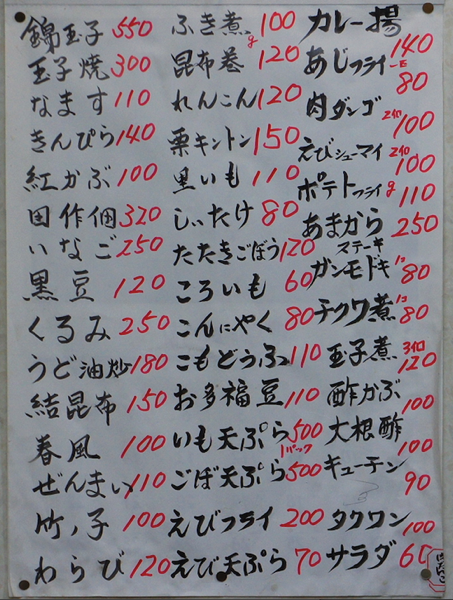 錦玉子 550
玉子焼 300
なます 110
きんぴら 140
紅かぶ 100
田作佃 320
いなご 250
黒豆 120
くるみ 250
うど油炒 180
結昆布 150
春風 100
ぜんまい 110
竹ノ子 100
わらび 120
ふき煮 g 100
昆布巻 120
れんこん 120
栗キントン 150
里いも 110
しいたけ 80
たたきごぼう 120
ころいも 60
こんにゃく 80
こもどうふ 110
お多福豆 110
いも天ぷら 500
1パック
ごぼ天ぷら 500
えびフライ 200
えび天ぷら 70
カレー揚 140
あじフライ 80
肉ダンゴ 2ケ 100
えびシューマイ 2ケ 100
ポテトフライ g 110
あまから 250
ステーキ
ガンモドキ 1コ 80
チクワ煮 1コ 80
玉子煮 3ケ 120
酢かぶ 100
大根酢 100
キューチン 90
タクワン 100
サラダ 60